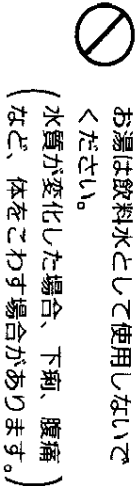 お湯は飲料水として使用しないで
ください。
(水質が変化した場合、下痢、腹痛
など、体をこわす場合があります。)